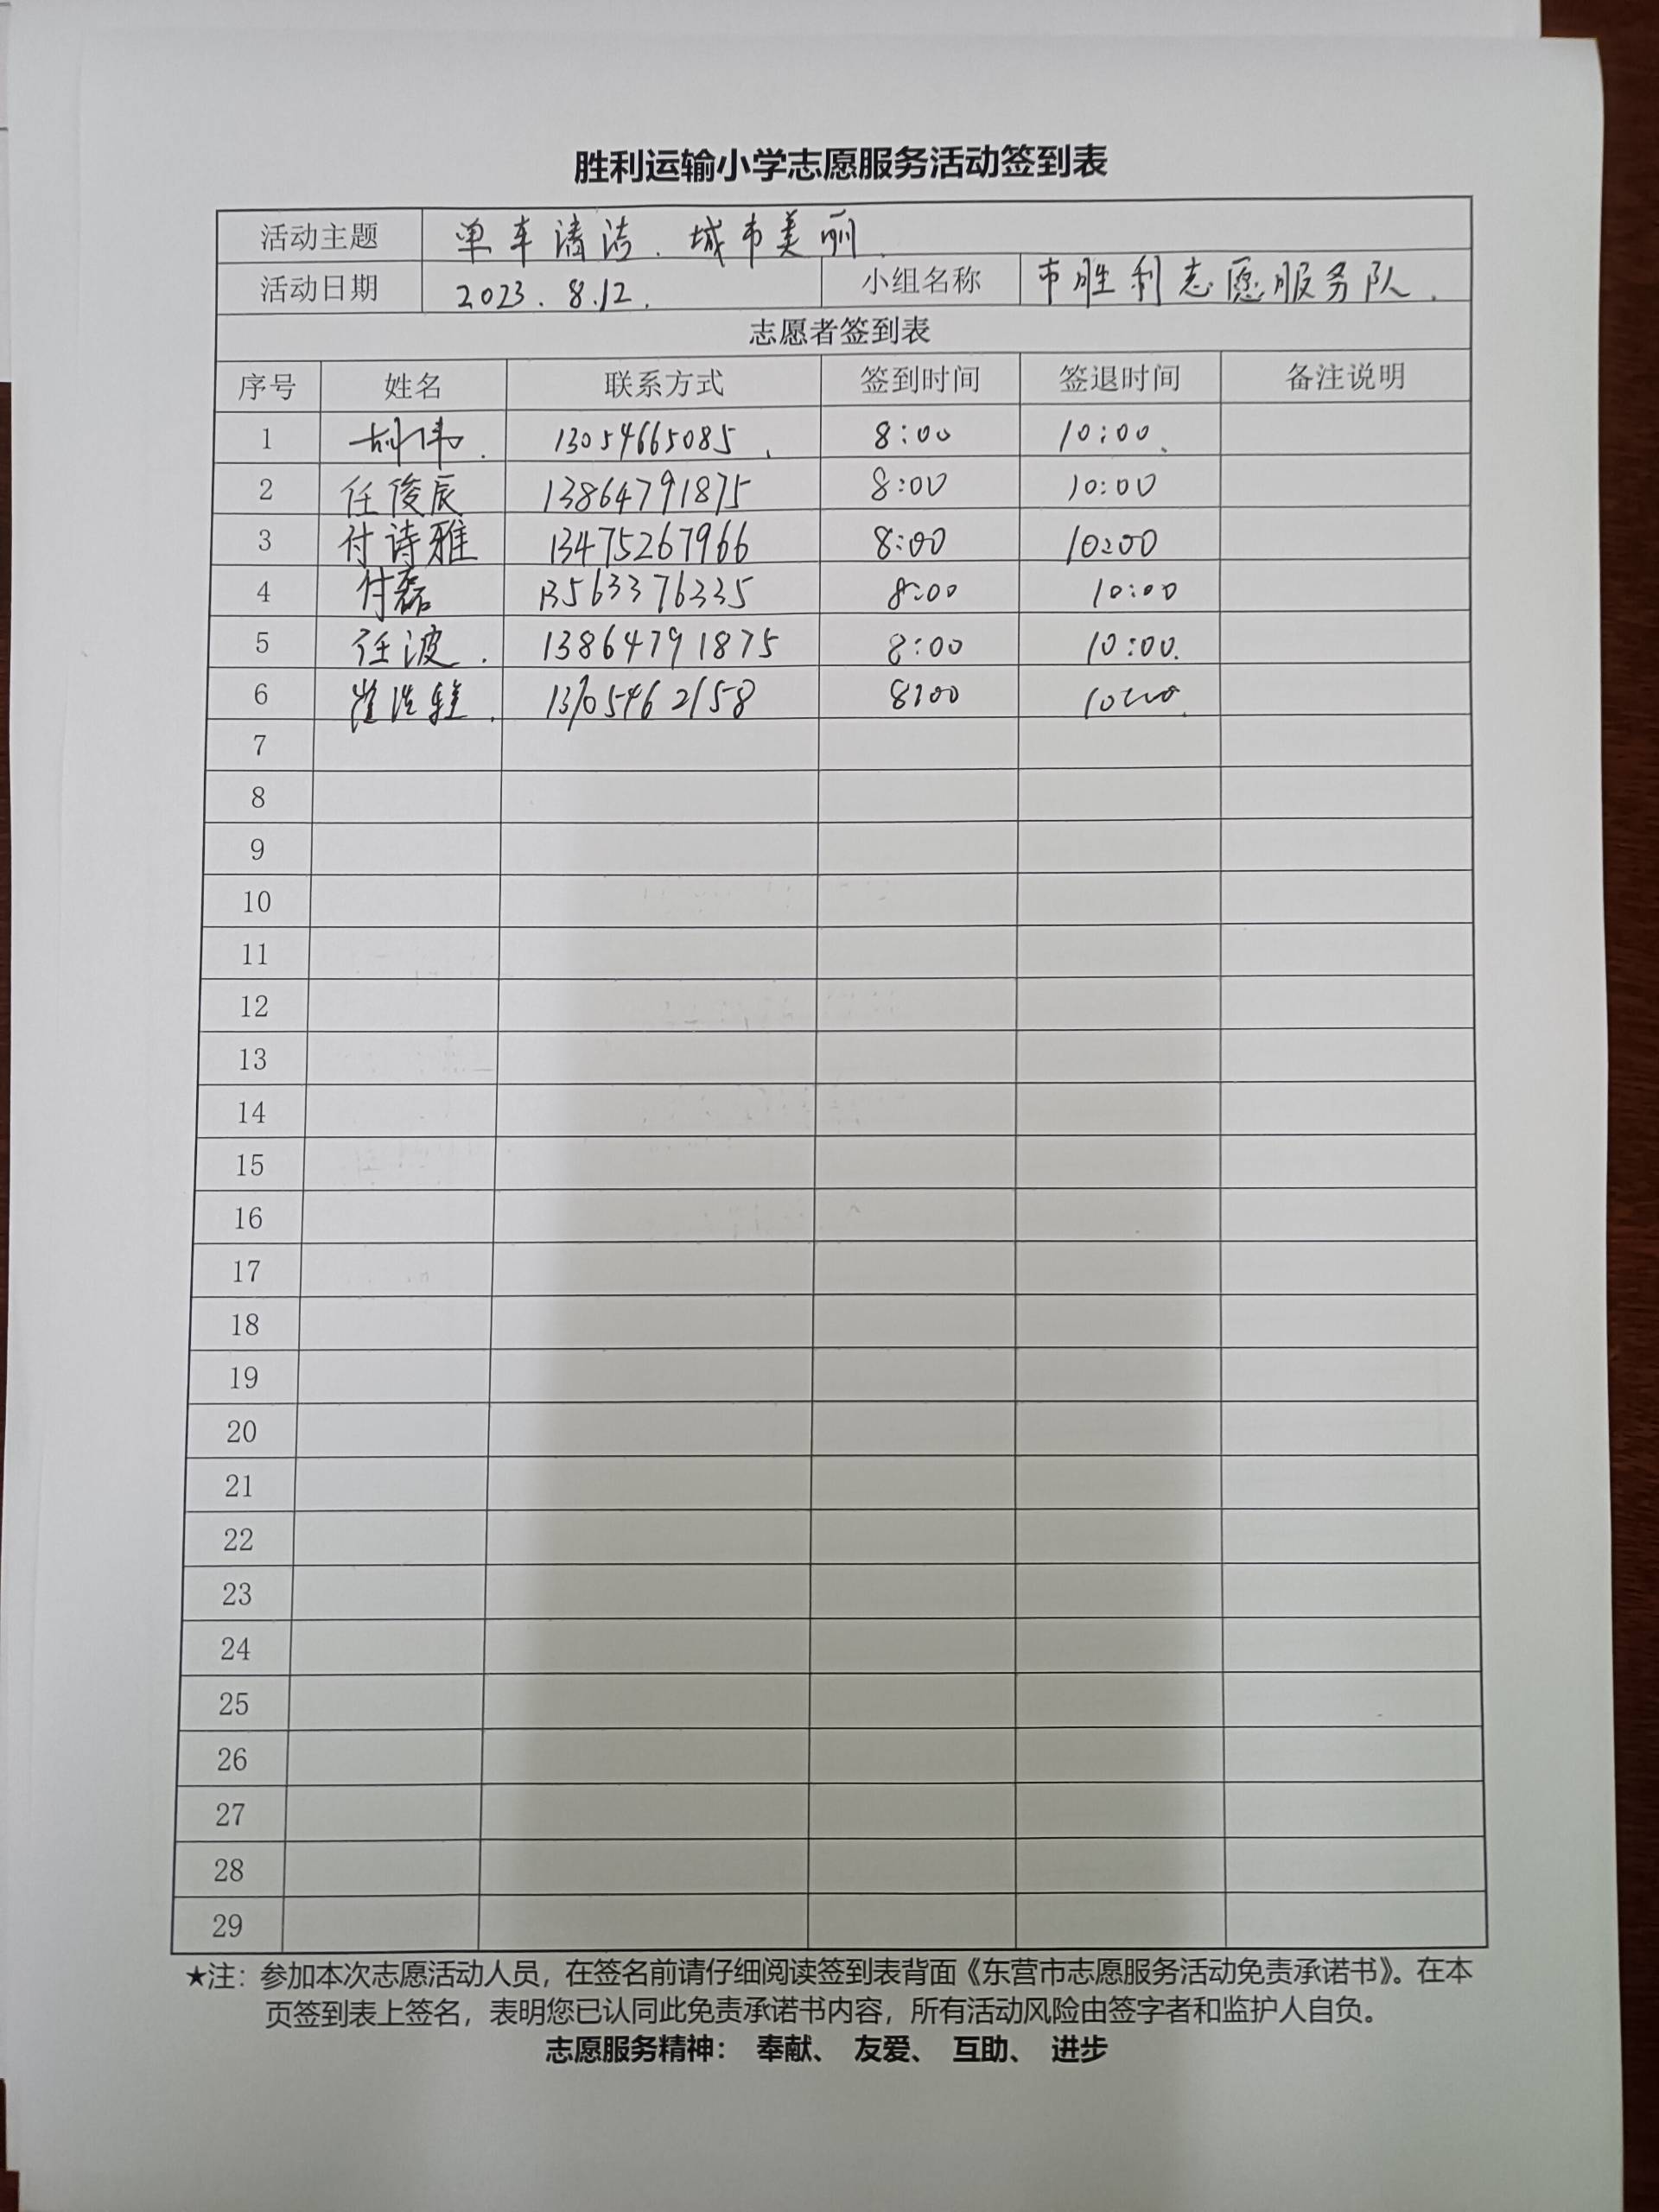 胜利运输小学志愿服务活动签到表
活动主题 单车清洁.城市美丽.
活动日期 2023.8.12. 小组名称 市胜利志愿服务队.
志愿者签到表
序号 姓名 联系方式 签到时间 签退时间 备注说明
1 13054665085 8:00 10:00
2 任俊辰 13864791875 8:00 10:00
3 付诗雅 13475267966 8:00 10:00
4 付磊 13563376335 8:00 10:00
5 任波. 13864791875 8:00 10:00.
6 8:00 10:00.
7
8
9
10
11
12
13
14
15
16
17
18
19
20
21
22
23
24
25
26
27
28
29
★注：参加本次志愿活动人员，在签名前请仔细阅读签到表背面《东营市志愿服务活动免责承诺书》。在本
页签到表上签名，表明您已认同此免责承诺书内容，所有活动风险由签字者和监护人自负。
志愿服务精神： 奉献、 友爱、 互助、 进步